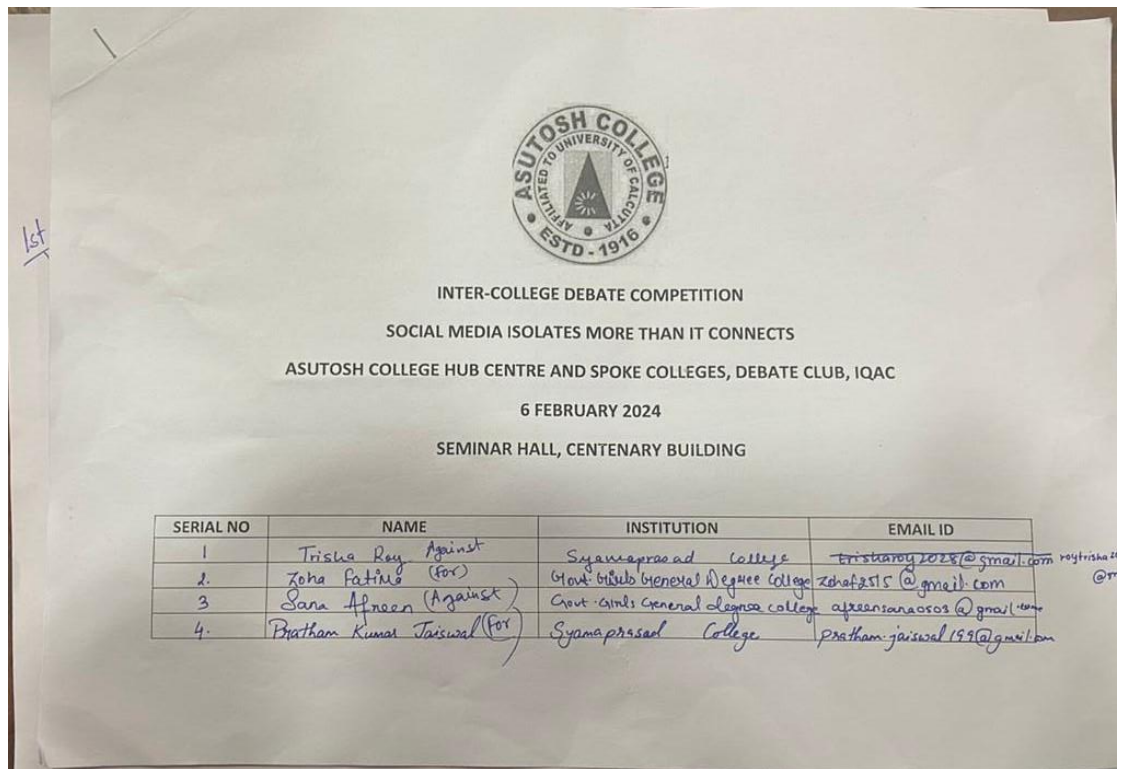 ASUTOSH COLLEGE
AFFILIATED TO UNIVERSITY OF CALCUTTA
ESTD - 1916
1st
INTER-COLLEGE DEBATE COMPETITION
SOCIAL MEDIA ISOLATES MORE THAN IT CONNECTS
ASUTOSH COLLEGE HUB CENTRE AND SPOKE COLLEGES, DEBATE CLUB, IQAC
6 FEBRUARY 2024
SEMINAR HALL, CENTENARY BUILDING
SERIAL NO NAME INSTITUTION EMAIL ID
1 Trisha Roy Against Syamaprasad College trisharoy2028@gmail.com roytrisha
2. Zoha Fatima (for) Govt. Girls General Degree College zohaf2515@gmail.com
3 Sana Afreen (Against) Govt. Girls General degree college afreensana0503@gmail.com
4. Pratham Kumar Jaiswal (for) Syamaprasad College pratham.jaiswal199@gmail.com